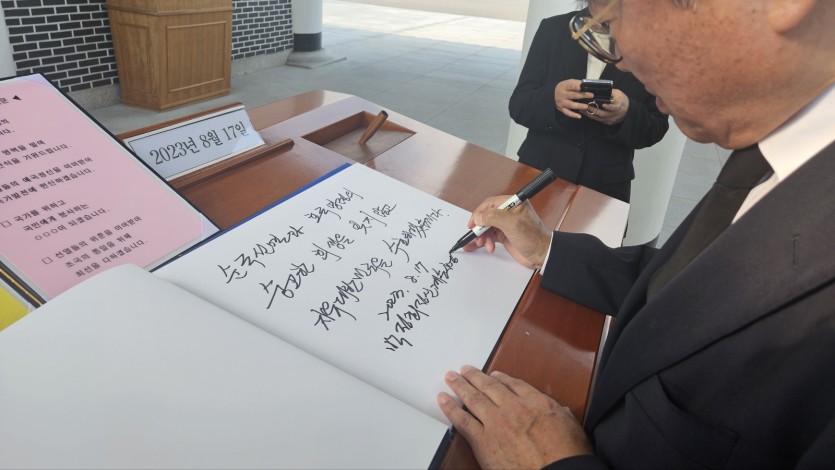 문 ◀
2023년 8월 17일
의
명복을 빌며
안식을 기원드립니다.
들의 애국정신을 이어받아
국가발전에 헌신하겠습니다.
□ 국가를 위하고
국민에게 봉사하는
○○○이 되겠습니다.
□ 선열들의 위훈을 이어받아
조국의 영달을 위해
최선을 다하겠습니다.
순국선열과 호국영령의
숭고한 희생을 잊지 않고
자유대한민국을 수호하겠습니다.
2023. 8. 17